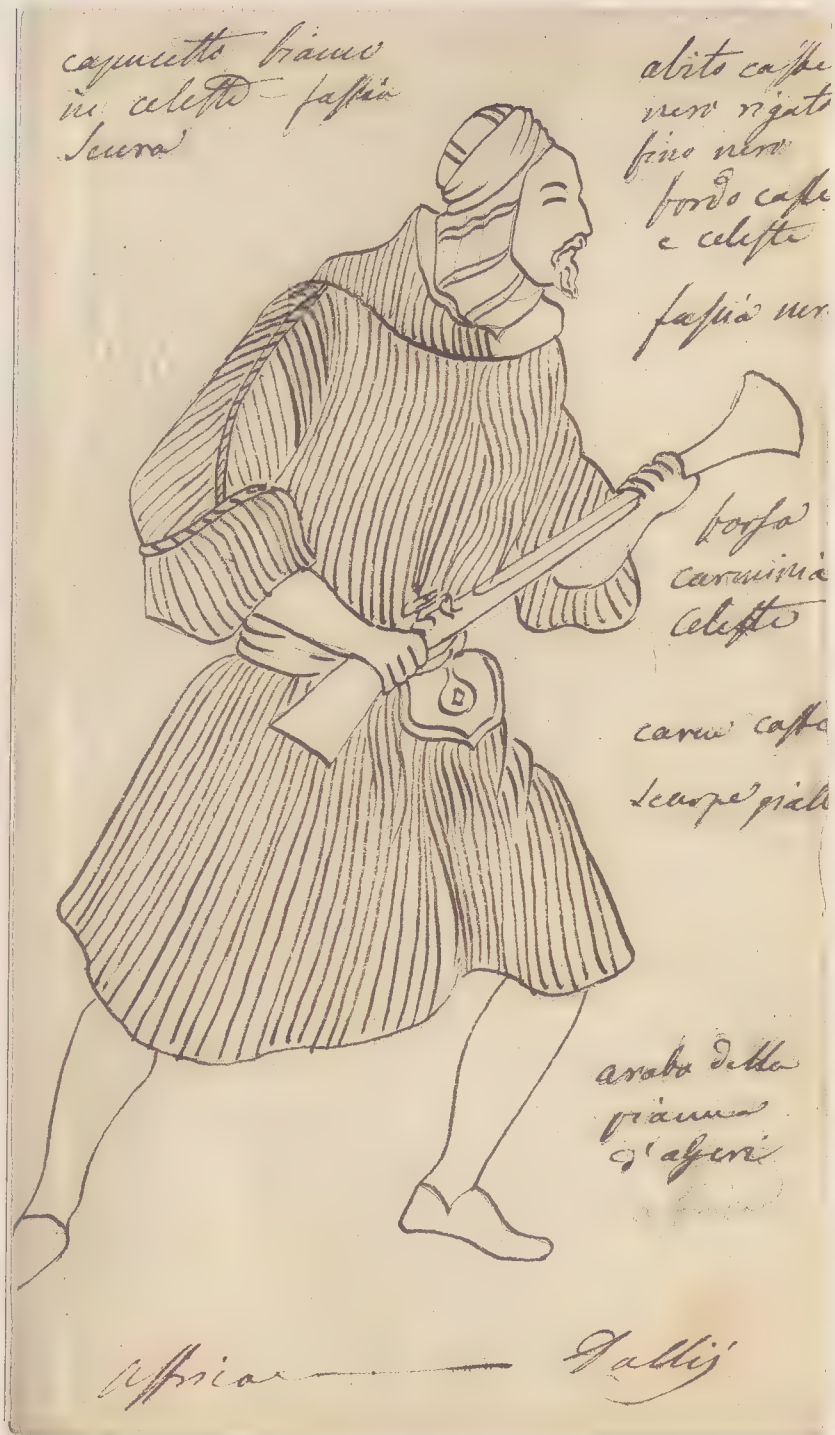 capucetto bianco
in celeste - fascia
scura
abito caffe
nero rigato
fino nero
bordo caffe
e celeste
fascia ner
borsa
carminia
celeste
carne caffe
scarpe giall
arabo della
pianura
d'algeri
Affrica — Dallis